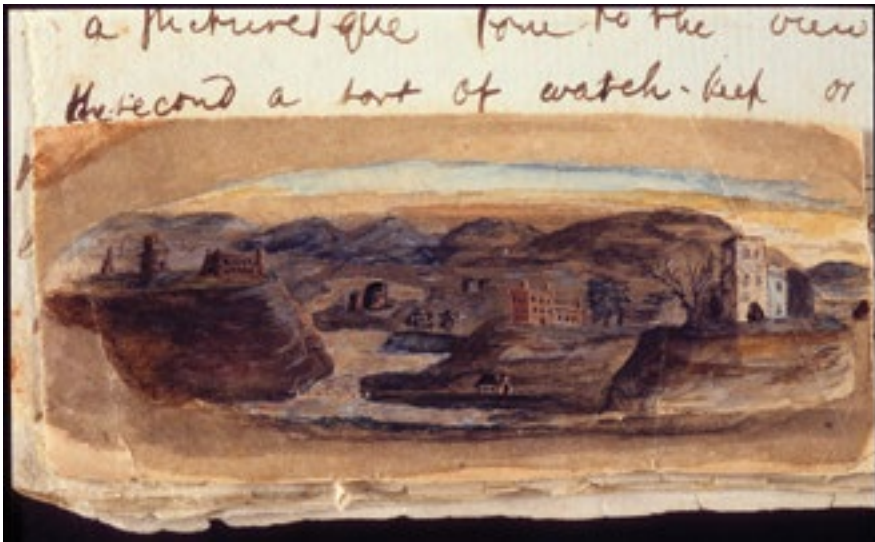 a picturesque tone to the view
the second a sort of watch-keep or